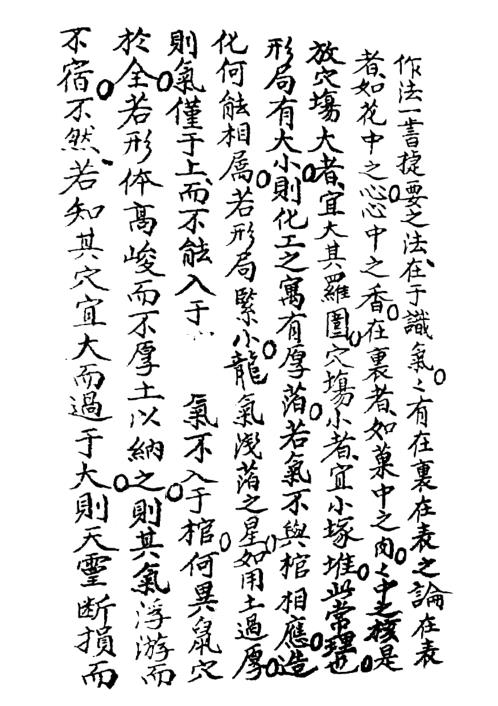 作法一書捷要之法、在于識氣。々有在裏在表之論在表
者如花中之心。心中之香。在裏者如菓中之肉。々中之核是
放穴塲大者、宜大其羅圍。穴塲小者、宜小塚堆。此常理也。
形局有大小。則化工之寓有厚薄。若氣不與棺相應。造
化何能相属。若形局緊小。龍氣浅薄之星。如用土過厚。
則氣僅于上、而不能入于 氣不入于棺。何異鼠穴
於全。若形体高峻而不厚土以納之。則其氣浮游而
不宿。不然、若知其穴宜大而過于大則天靈断損而